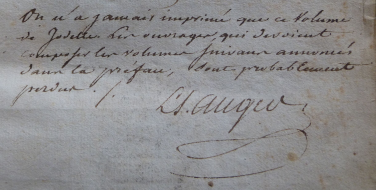 On n'a jamais imprimé que ce volume
de Jodelle. Les ouvrages, qui devoient
composer les volumes suivans annoncés
dans la préface, sont probablement
perdus.
L. S. Auger